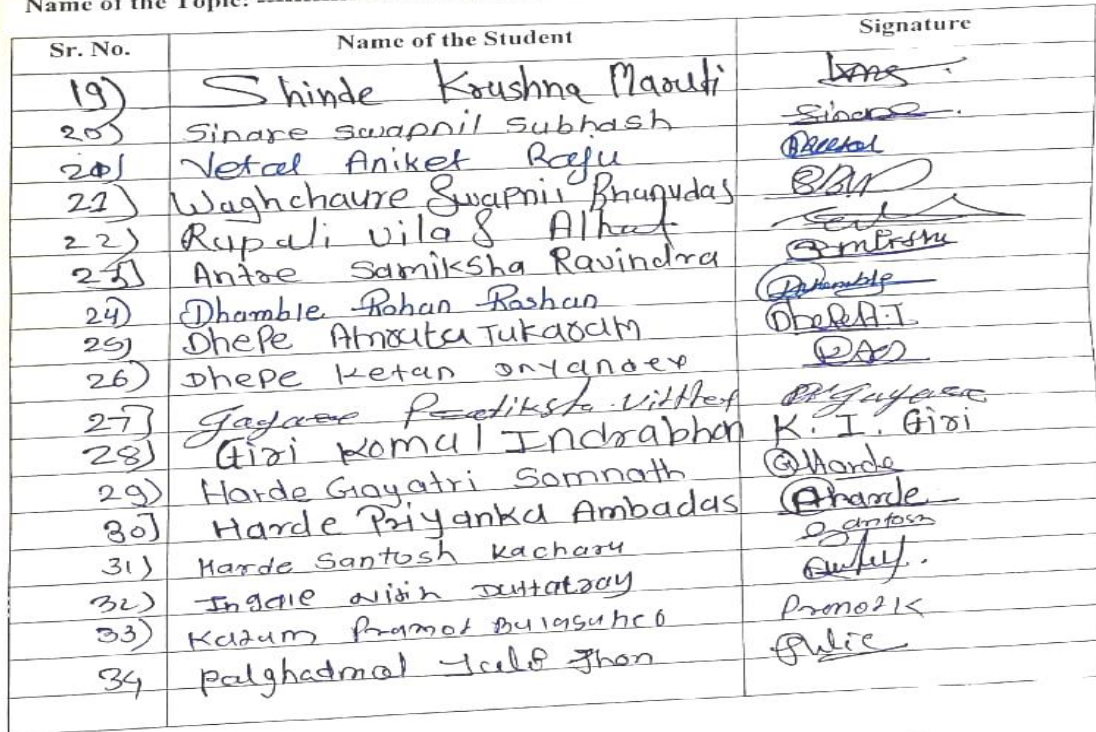 Name of the Topic:
Sr. No. Name of the Student Signature
19) Shinde Krushna Maruti
20) Sinare swapnil subhash Sinare
21) Vetal Aniket Raju
21) Waghchaure Swapnil Bhanudas
22) Rupali vilas Alhat
23] Antre Samiksha Ravindra
24) Dhamble Rohan Roshan Dhamble
25) Dhepe Amruta Tukaram Dhepe A.T.
26) Dhepe Ketan
27] Gagare Pratiksha
28) Giri Komal Indrabhan K. I. Giri
29) Harde Gayatri Somnath G Harde
30] Harde Priyanka Ambadas Aharde
31) Harde Santosh Kacharu Santosh
32) Ingale Nitin Dattatray
33) Kadam Pramod
34 Palghadmal Jhon